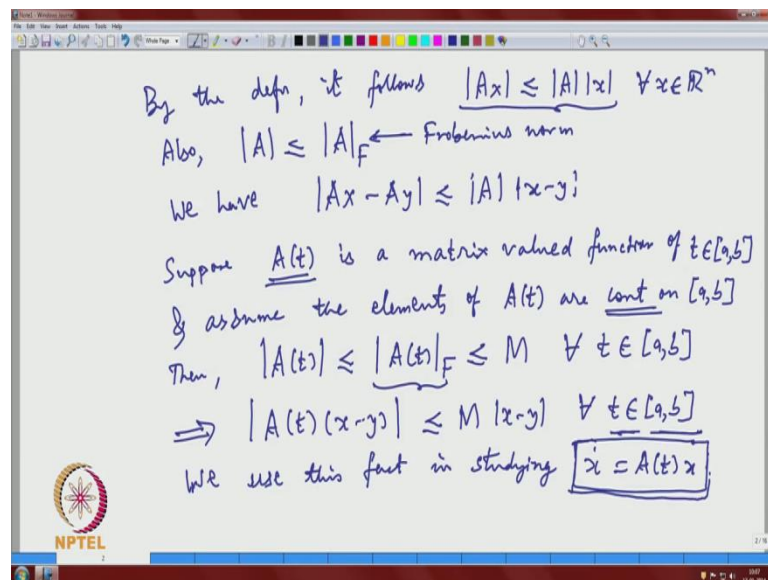 Note1 - Windows Journal
File Edit View Insert Actions Tools Help
Whole Page
By the defn, it follows |Ax| ≤ |A| |x| ∀ x ∈ ℝⁿ
Also, |A| ≤ |A|_F ← Frobenius norm
We have |Ax - Ay| ≤ |A| |x-y|
Suppose A(t) is a matrix valued function of t ∈ [a,b]
& assume the elements of A(t) are cont on [a,b]
Then, |A(t)| ≤ |A(t)|_F ≤ M ∀ t ∈ [a,b]
⟹ |A(t)(x-y)| ≤ M |x-y| ∀ t ∈ [a,b]
We use this fact in studying ẋ = A(t)x
NPTEL
2